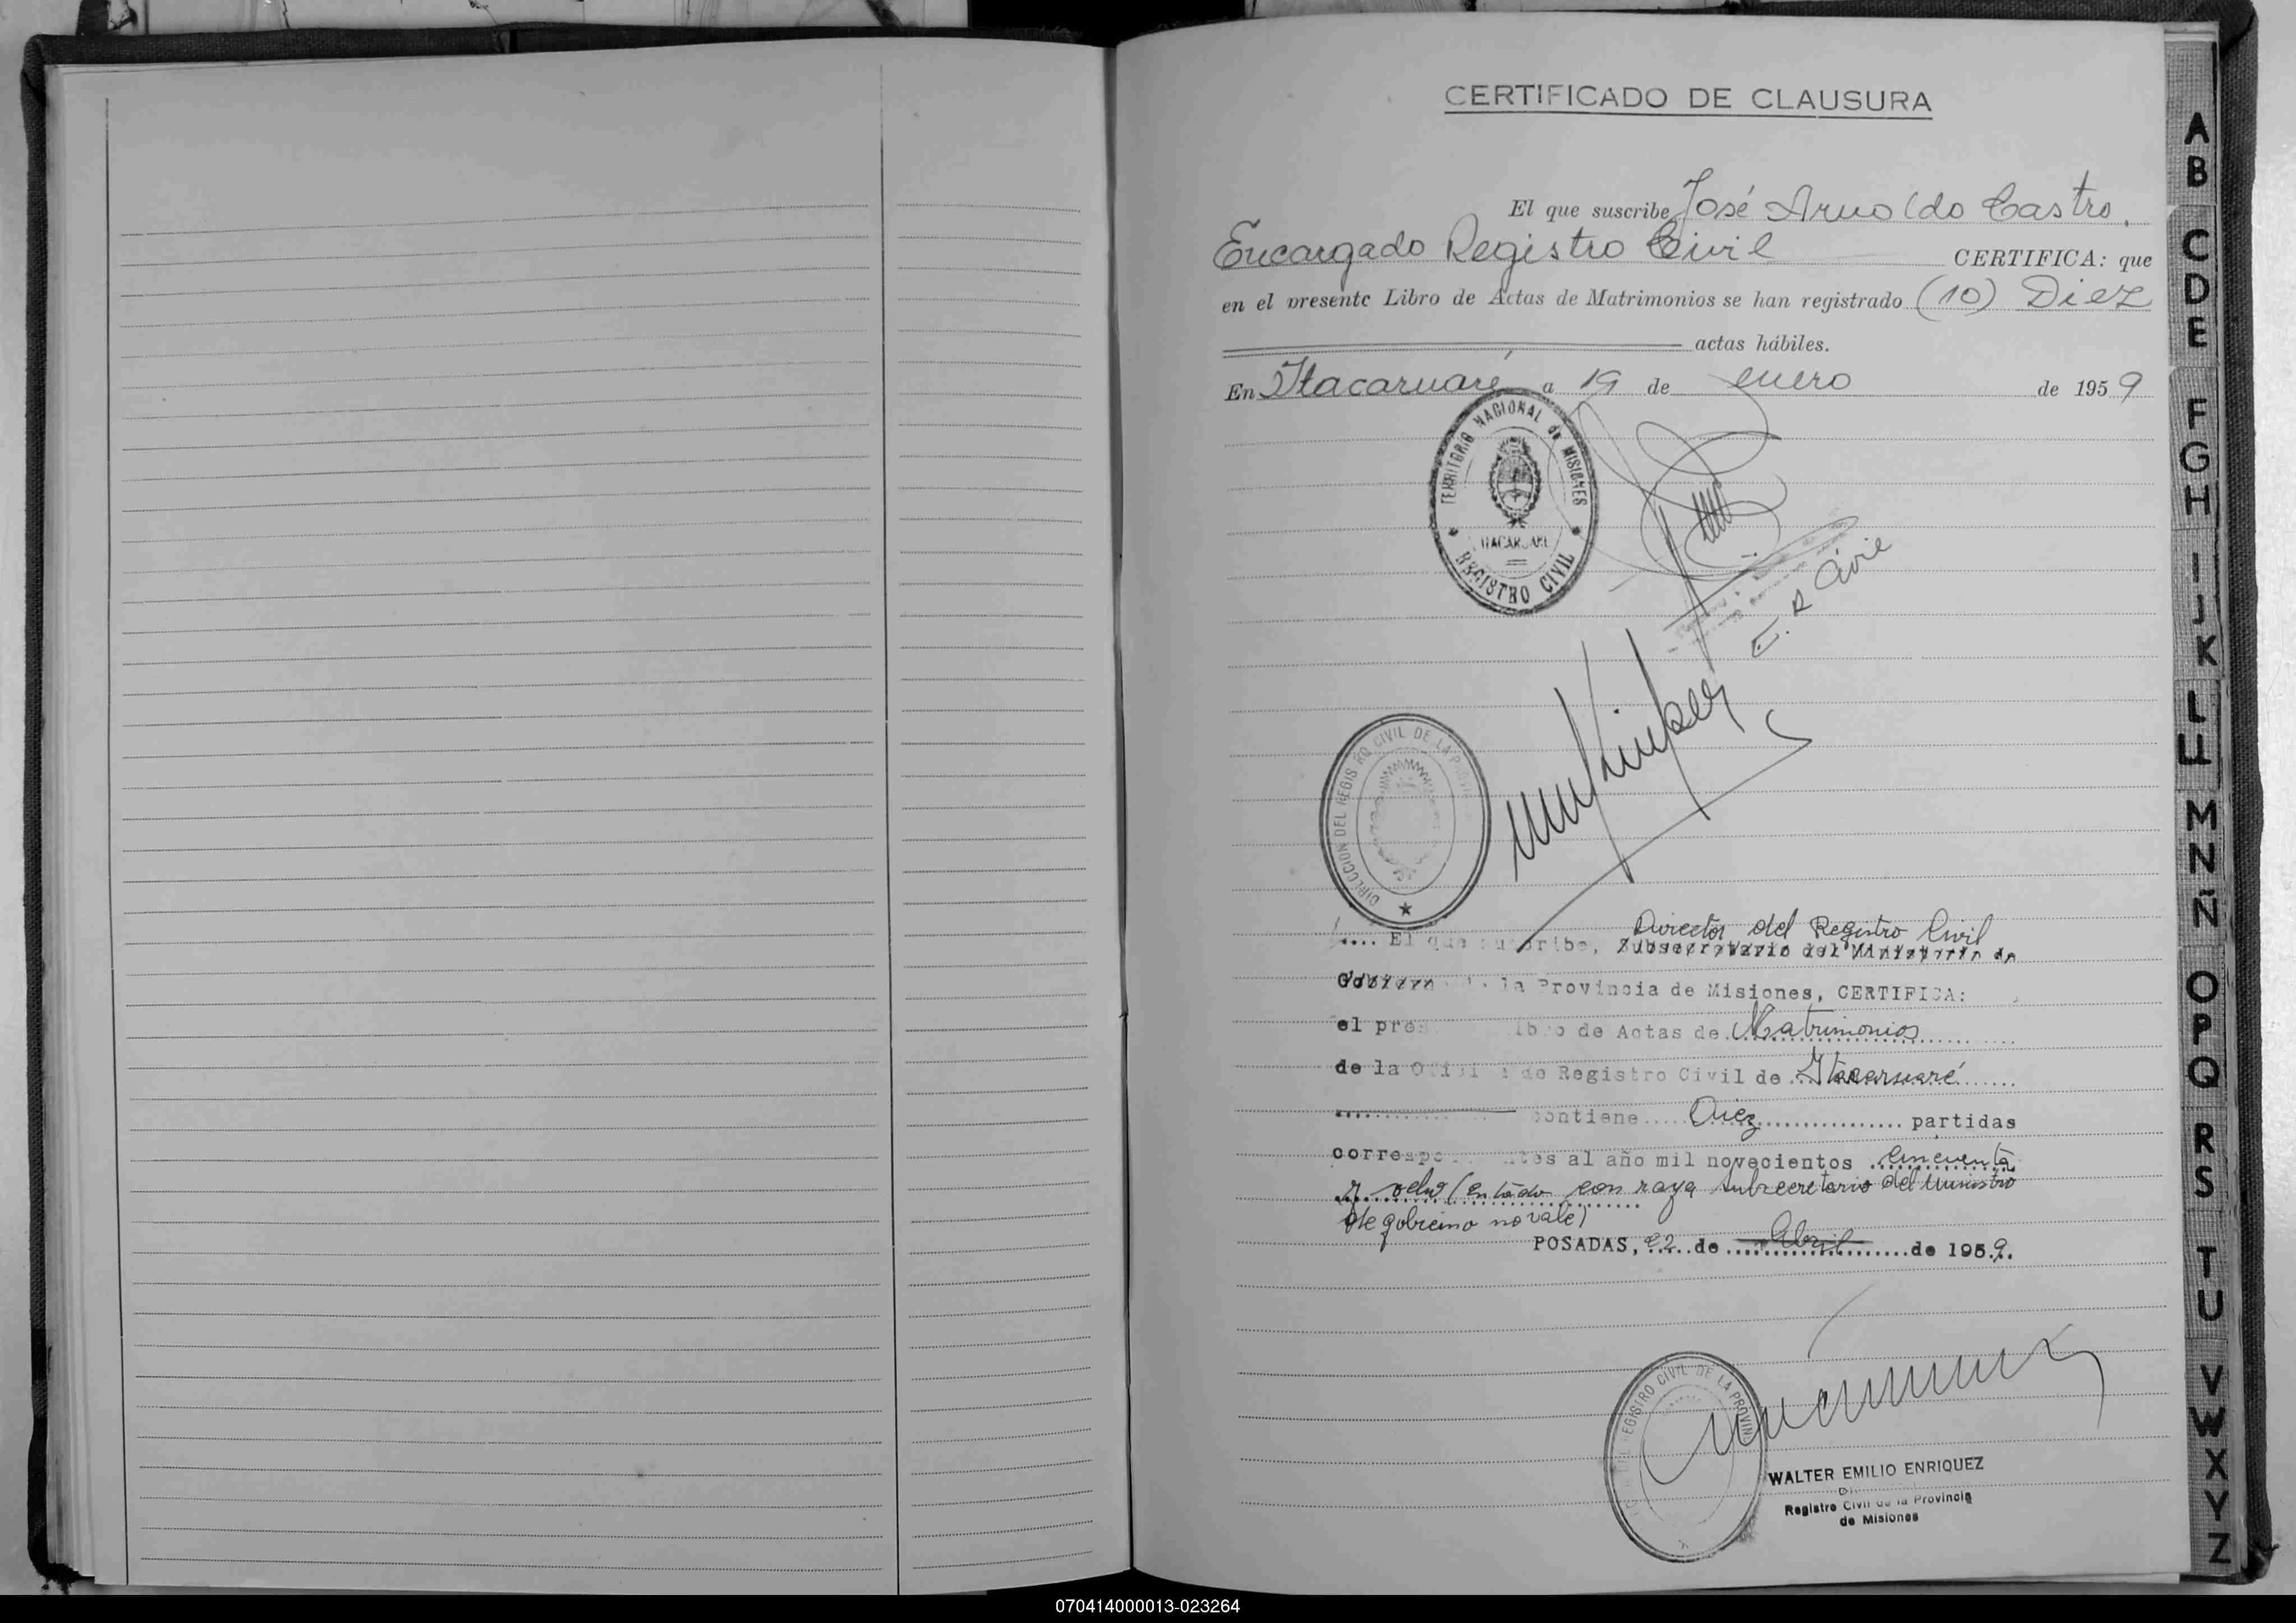 CERTIFICADO DE CLAUSURA
El que suscribe José Arnoldo Castro.
Encargado Registro Civil CERTIFICA: que
en el presente Libro de Actas de Matrimonios se han registrado (10) Diez
actas hábiles.
En Itacaruaré a 19 de enero de 1959
TERRITORIO NACIONAL de MISIONES
ITACARUARE
REGISTRO CIVIL
E. R Civil
DIRECCION DEL REGISTRO CIVIL DE LA
Director del Registro Civil
.... El que suscribe, Subsecretario del Ministerio de
Gobierno de la Provincia de Misiones, CERTIFICA:
el pres libro de Actas de Matrimonios
de la Oficina de Registro Civil de Itacaruaré
contiene Diez partidas
correspo ntes al año mil novecientos cincuenta
y ocho (entado con raya subsecretario del ministro
de gobierno no vale)
POSADAS, 22 de Abril de 1959.
REGISTRO CIVIL DE LA PROVIN
WALTER EMILIO ENRIQUEZ
Registro Civil de la Provincia
de Misiones
A
B
C
D
E
F
G
H
I
J
K
L
LL
M
N
Ñ
O
P
Q
R
S
T
U
V
W
X
Y
Z
070414000013-023264